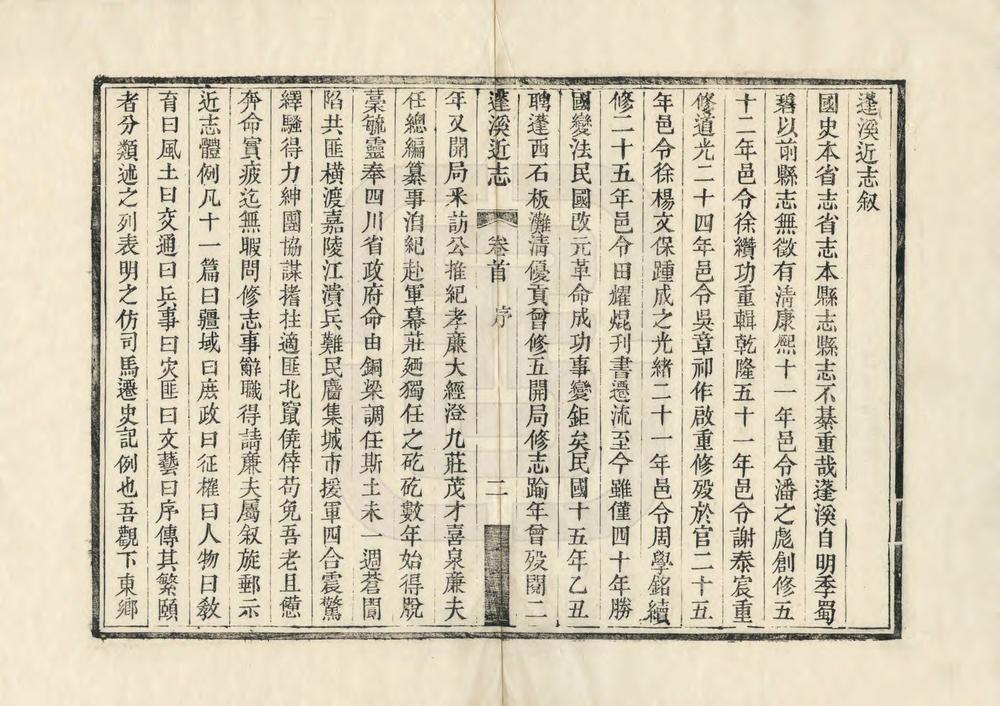 蓬溪近志叙
國史本省志省志本縣志縣志不綦重哉蓬溪自明季蜀
碧以前縣志無徵有淸康熙十一年邑令潘之彪創修五
十二年邑令徐纘功重輯乾隆五十一年邑令謝泰宸重
修道光二十四年邑令吳章祁作啟重修歿於官二十五
年邑令徐楊文保踵成之光緒二十一年邑令周學銘續
修二十五年邑令田燿焜刊書遷流至今雖僅四十年勝
國變法民國改元革命成功事變鉅矣民國十五年乙丑
聘蓬西石板灘淸優貢曾修五開局修志踰年曾歿閱二
蓬溪近志 卷首 序 二
年又開局釆訪公推紀孝廉大經澄九莊茂才喜泉廉夫
任總編纂事洎紀赴軍幕莊廼獨任之矻矻數年始得脫
藁毓靈奉四川省政府命由銅梁調任斯土未一週蒼閬
陷共匪橫渡嘉陵江潰兵難民麕集城市援軍四合震驚
繹騷得力紳團協謀搘拄適匪北竄僥倖苟免吾老且憊
奔命實疲迄無暇問修志事辭職得請廉夫屬叙旋郵示
近志體例凡十一篇曰疆域曰庶政曰征榷曰人物曰敎
育曰風土曰交通曰兵事曰灾匪曰文藝曰序傳其繁頤
者分類述之列表明之仿司馬遷史記例也吾觀下東鄉